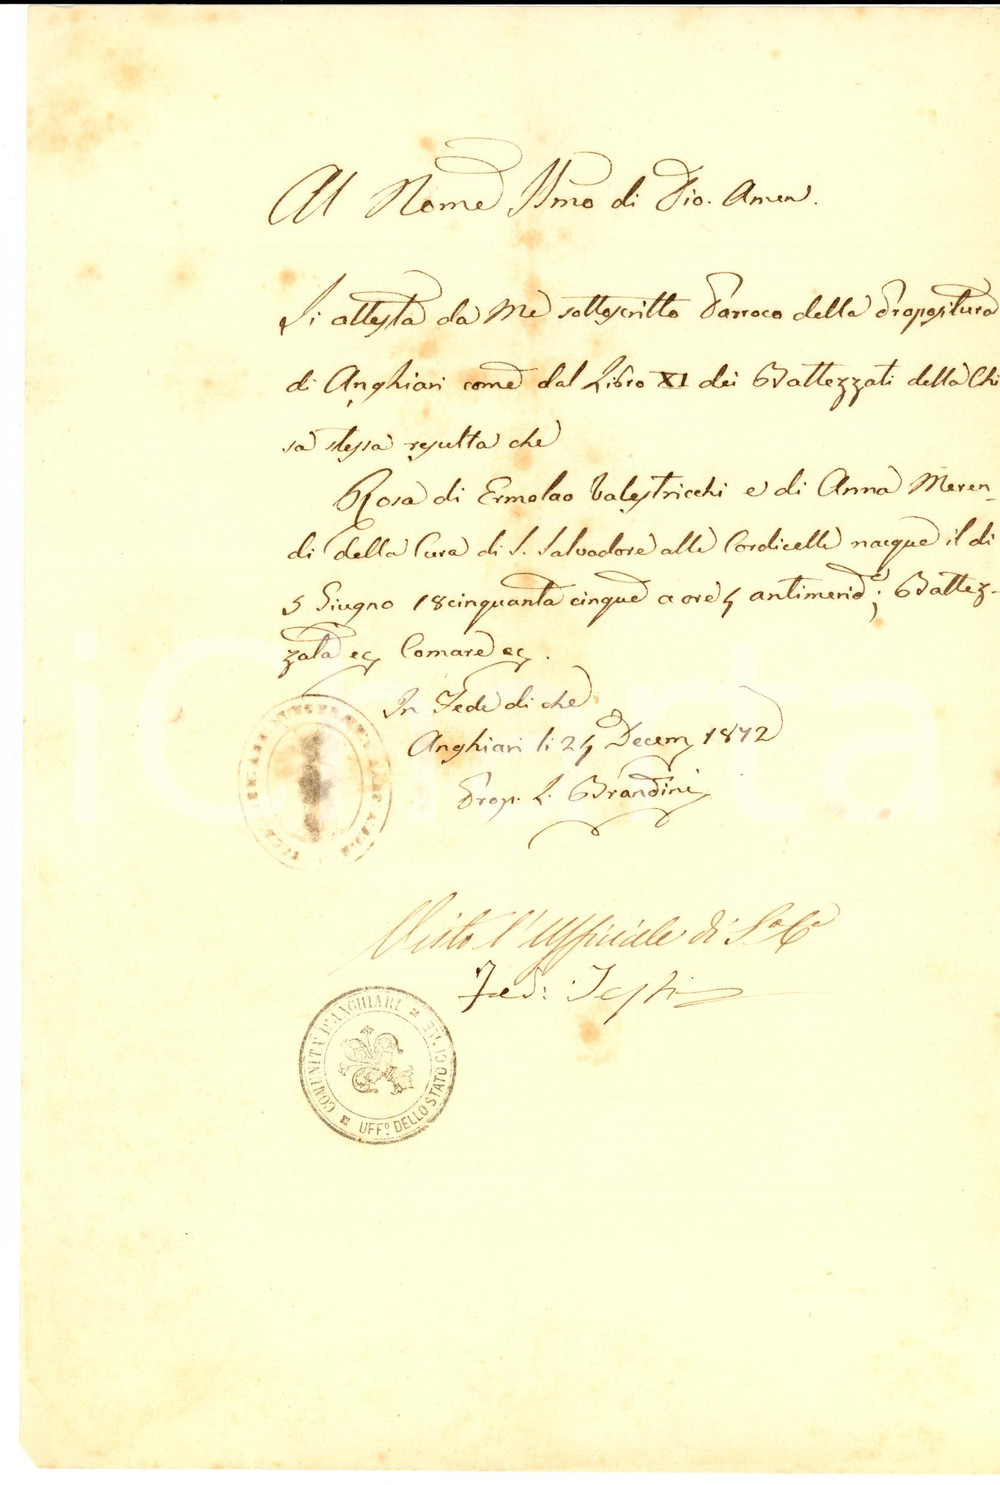 Al Nome SSmo di Dio. Amen.
Si attesta da Me sottoscritto Parroco della Propositura
di Anghiari come dal Libro XI dei Battezzati della Chi
sa stessa resulta che
Rosa di Ermolao Valestricchi e di Anna Meren-
di della Cura di S. Salvadore alle Cordicelle nacque il di
5 Giugno 18cinquanta cinque a ore 4 antimerid:e; Battez-
zata ec, Comare ec,.
In Fede di che
Anghiari li 24 Decem, 1872
Prop. L. Brandini
Visto l'Uffiziale di Sto Ce
Fed:
COMUNITÀ D'ANGHIARI
UFFO DELLO STATO CIVILE